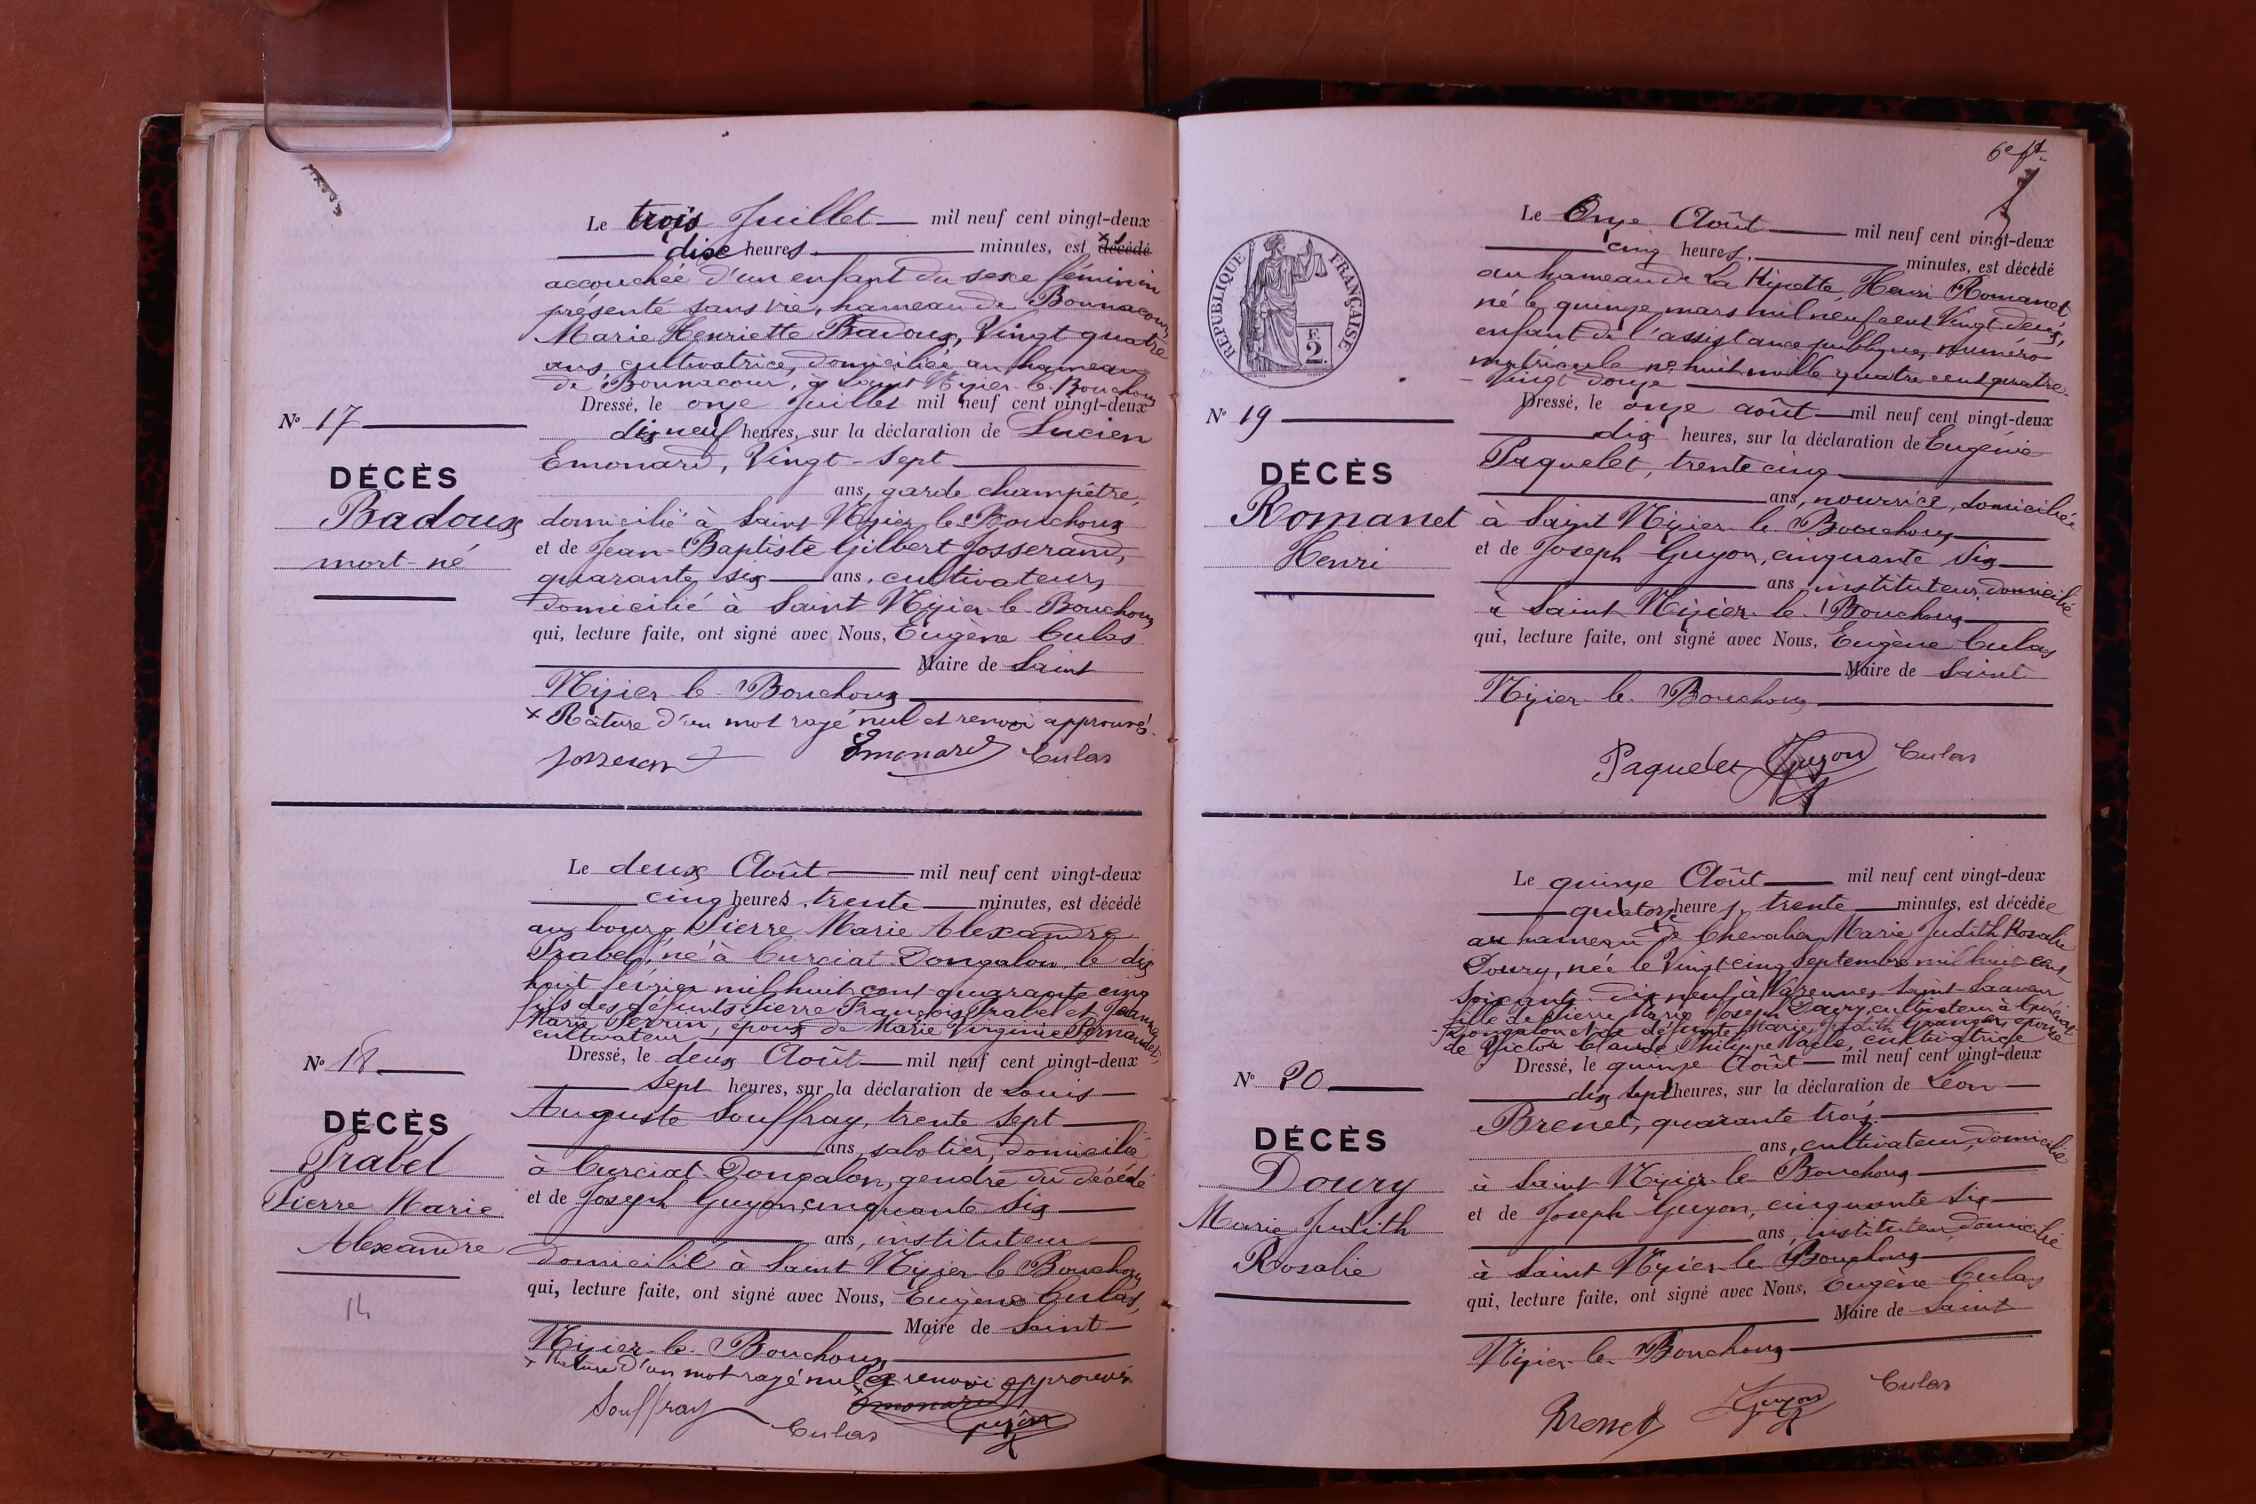 Le trois Juillet mil neuf cent vingt-deux
dix heures minutes, est décédé
accouchée d'un enfant du sexe féminin
présenté sans vie, hameau de Bonnacour,
Marie Henriette Badoux, Vingt quatre
ans, cultivatrice, domiciliée au hameau
de Bonnacour, à Saint Nizier-le-Bouchoux
N° 17
Dressé, le onze Juillet mil neuf cent vingt-deux
dix neuf heures, sur la déclaration de Lucien
DÉCÈS
Emonard, Vingt-sept
ans, garde champêtre,
Badoux
domicilié à Saint Nizier le Bouchoux
mort-né
et de Jean-Baptiste Gilbert Josserand,
quarante six ans, cultivateur,
domicilié à Saint Nizier-le-Bouchoux
qui, lecture faite, ont signé avec Nous, Eugène Culas
Maire de Saint
Nizier-le-Bouchoux
x Rature d'un mot rayé nul et renvoi approuvé.
Josserand Emonard Culas
Le deux Août mil neuf cent vingt-deux
cinq heures, trente minutes, est décédé
au bourg Pierre Marie Alexandre
Prabel, né à Curciat-Dongalon, le dix
huit février mil huit cent quarante cinq
fils des défunts Pierre François Prabel et Jeanne
Marie Perrin, époux de Marie Virginie Pernaudet,
cultivateur
N° 18
Dressé, le deux Août mil neuf cent vingt-deux
sept heures, sur la déclaration de Louis
DÉCÈS
Auguste Souffray, trente sept
ans, sabotier, domicilié
Prabel
à Curciat-Dongalon, gendre du décédé
Pierre Marie
et de Joseph Guyon, cinquante six
ans, instituteur
Alexandre
domicilié à Saint Nizier-le-Bouchoux
qui, lecture faite, ont signé avec Nous, Eugène Culas,
Maire de Saint
Nizier-le-Bouchoux
x Rature d'un mot rayé nul et renvoi approuvés
Souffray Culas Emonard Guyon
6e ft.
RÉPUBLIQUE FRANÇAISE
F.
2.
Le Onze Août mil neuf cent vingt-deux
cinq heures, minutes, est décédé
au hameau de La Hyette, Henri Romanet
né le quinze mars mil neuf cent Vingt-deux,
enfant de l'assistance publique, numéro
matricule n° huit mille quatre cent quatre-
Vingt-douze
N° 19
Dressé, le onze août mil neuf cent vingt-deux
dix heures, sur la déclaration de Eugénie
DÉCÈS
Paquelet, trente cinq
ans, nourrice, domiciliée
Romanet
à Saint Nizier-le-Bouchoux
Henri
et de Joseph Guyon, cinquante six
ans, instituteur, domicilié
à Saint Nizier-le-Bouchoux
qui, lecture faite, ont signé avec Nous, Eugène Culas
Maire de Saint
Nizier-le-Bouchoux
Paquelet Guyon Culas
Le quinze Août mil neuf cent vingt-deux
quatorze heures, trente minutes, est décédée
au hameau de Chevalier, Marie Judith Rosalie
Doury, née le Vingt cinq Septembre mil huit cent
soixante-dix neuf à Varennes Saint-Sauveur
fille de Pierre Marie Joseph Doury, cultivateur à Curciat-
Dongalon et de défunte Marie Judith Granger, épouse
de Victor Claude Philippe Nacle, cultivatrice
N° 20
Dressé, le quinze Août mil neuf cent vingt-deux
dix sept heures, sur la déclaration de Léon
DÉCÈS
Brenet, quarante trois
ans, cultivateur, domicilié
Doury
à Saint Nizier-le-Bouchoux
Marie Judith
et de Joseph Guyon, cinquante six
ans, instituteur, domicilié
Rosalie
à Saint Nizier-le-Bouchoux
qui, lecture faite, ont signé avec Nous, Eugène Culas
Maire de Saint
Nizier-le-Bouchoux
Brenet Guyon Culas